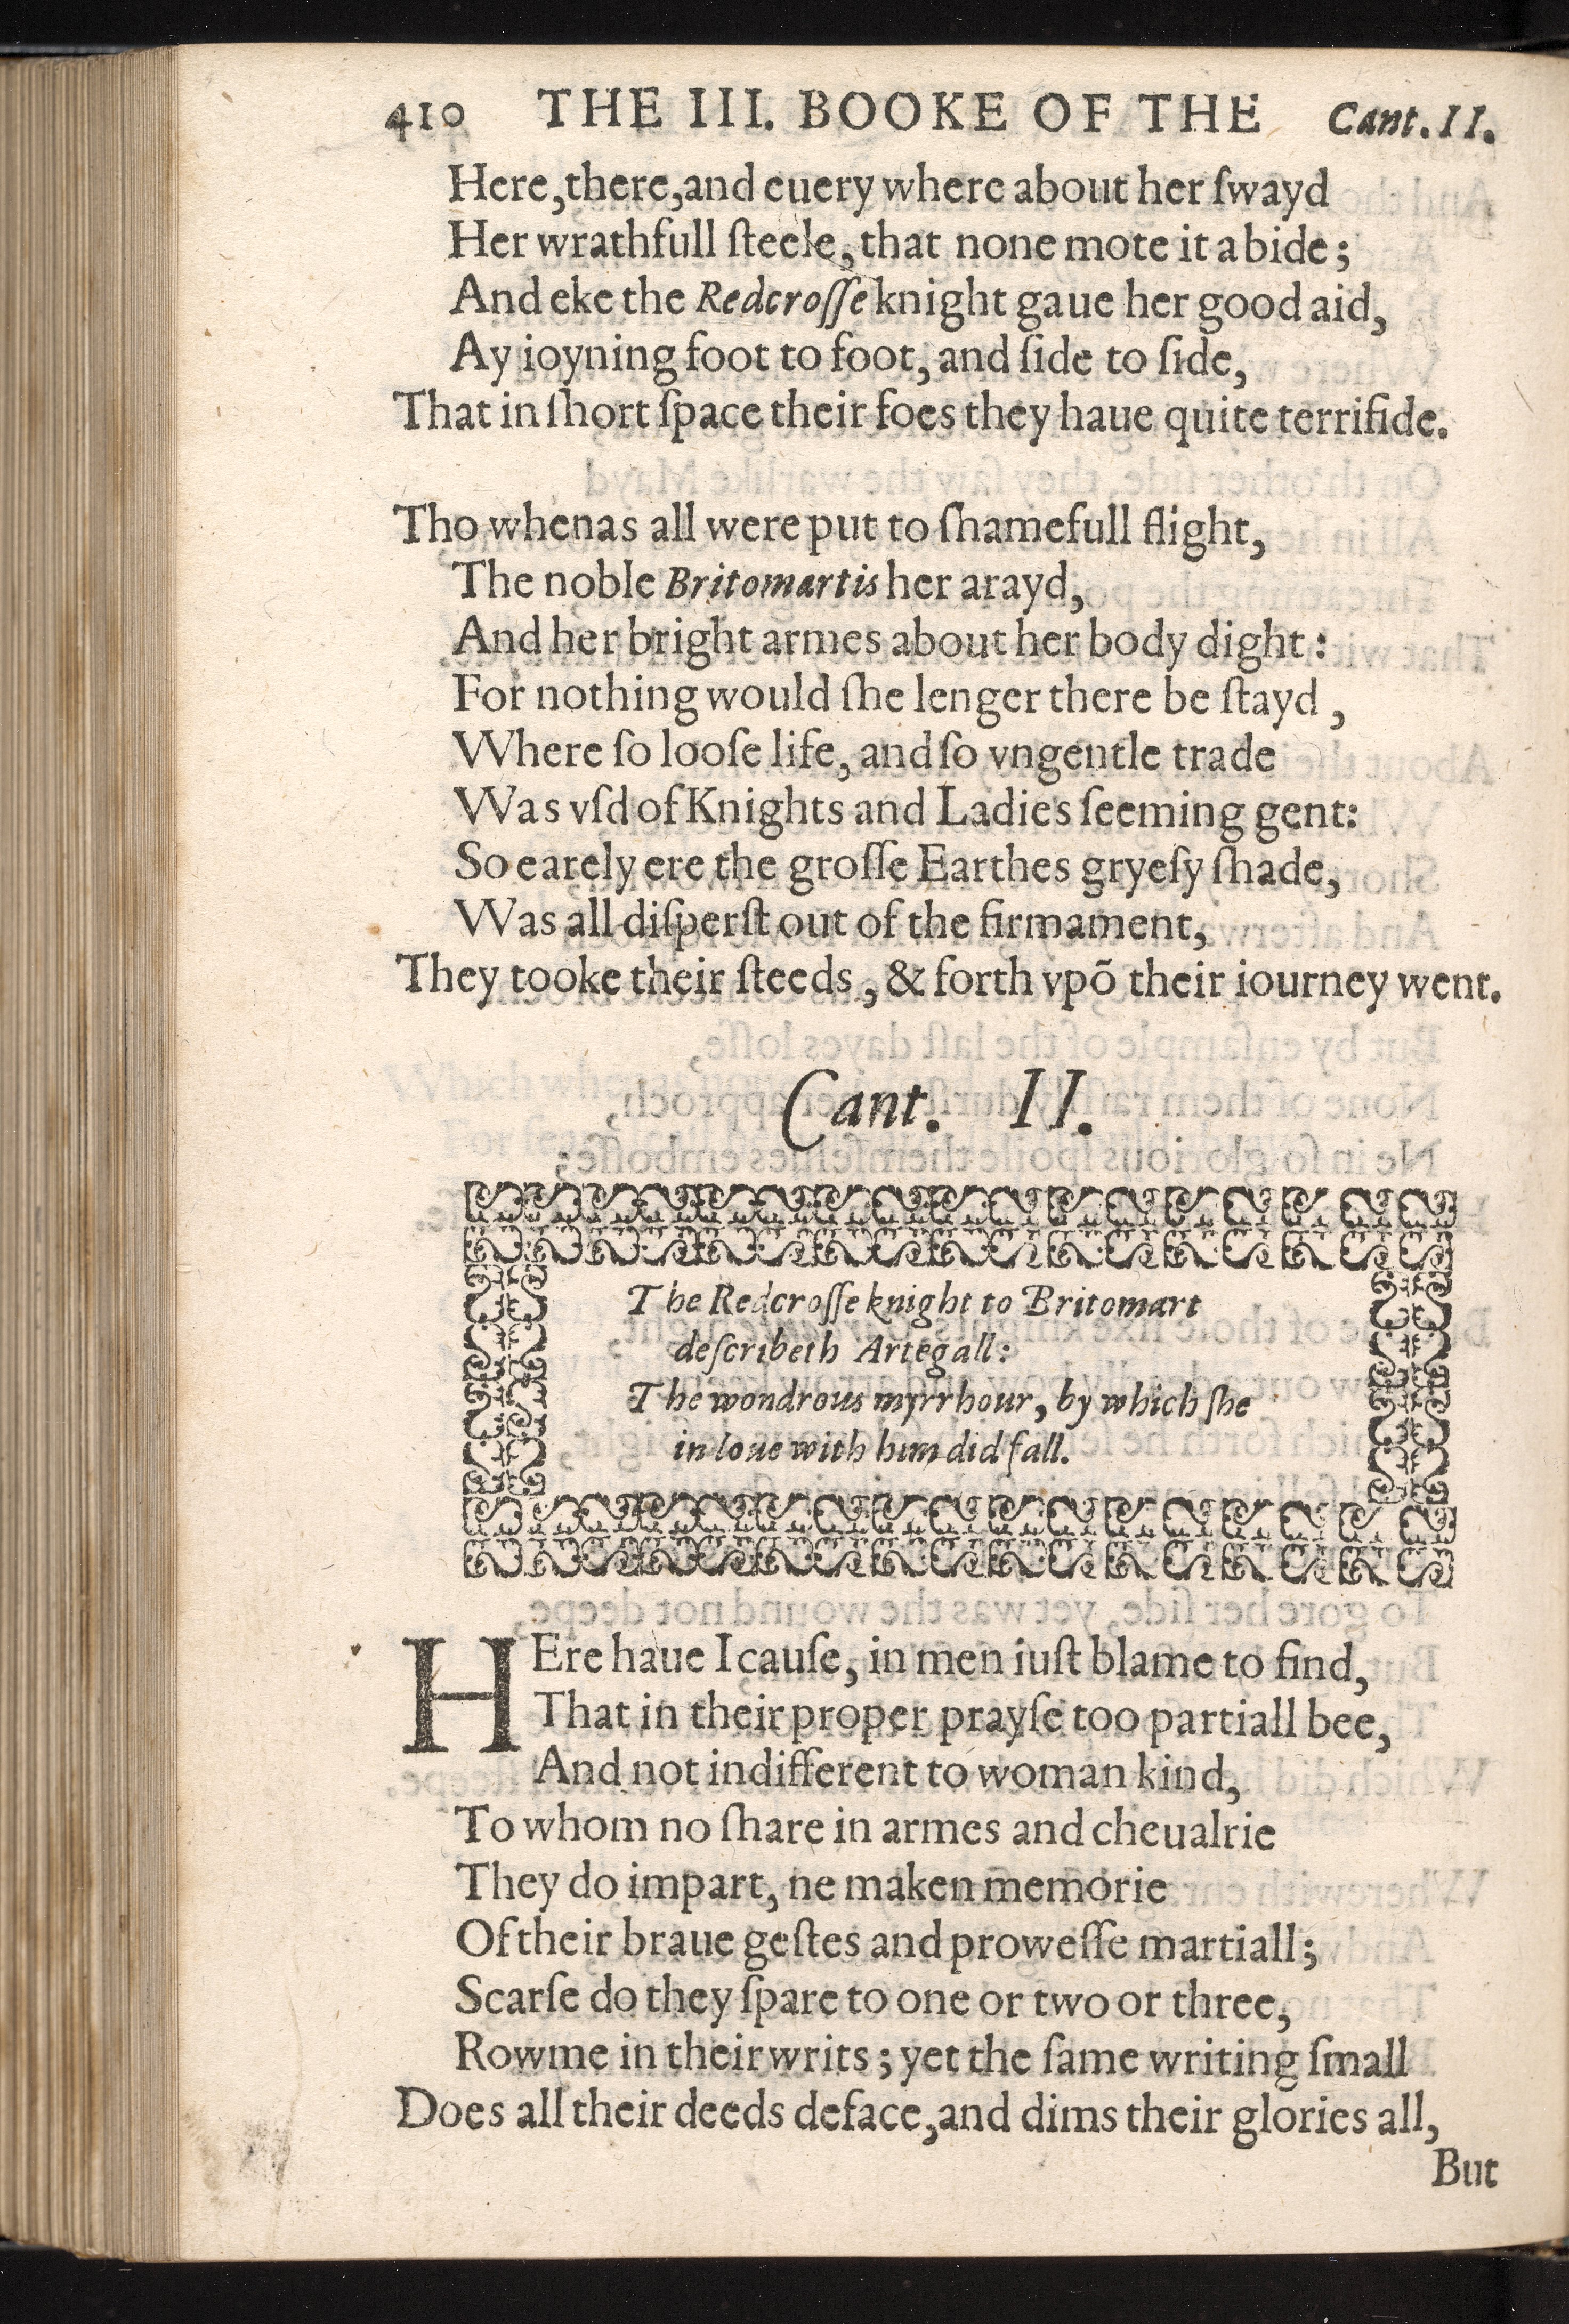 410 THE III. BOOKE OF THE Cant. II.
Here, there, and euery where about her ſwayd
Her wrathfull ſteele, that none mote it abide;
And eke the Redcroſſe knight gaue her good aid,
Ay ioyning foot to foot, and ſide to ſide,
That in ſhort ſpace their foes they haue quite terrifide.
Tho whenas all were put to ſhamefull flight,
The noble Britomartis her arayd,
And her bright armes about her body dight:
For nothing would ſhe lenger there be ſtayd,
Where ſo looſe life, and ſo vngentle trade
Was vſd of Knights and Ladies ſeeming gent:
So earely ere the groſſe Earthes gryeſy ſhade,
Was all diſperſt out of the firmament,
They tooke their ſteeds, & forth vpõ their iourney went.
Cant. II.
The Redcroſſe knight to Britomart
deſcribeth Artegall:
The wondrous myrrhour, by which ſhe
in loue with him did fall.
HEre haue I cauſe, in men iuſt blame to find,
That in their proper prayſe too partiall bee,
And not indifferent to woman kind,
To whom no ſhare in armes and cheualrie
They do impart, ne maken memorie
Of their braue geſtes and proweſſe martiall;
Scarſe do they ſpare to one or two or three,
Rowme in their writs; yet the ſame writing ſmall
Does all their deeds deface, and dims their glories all,
But